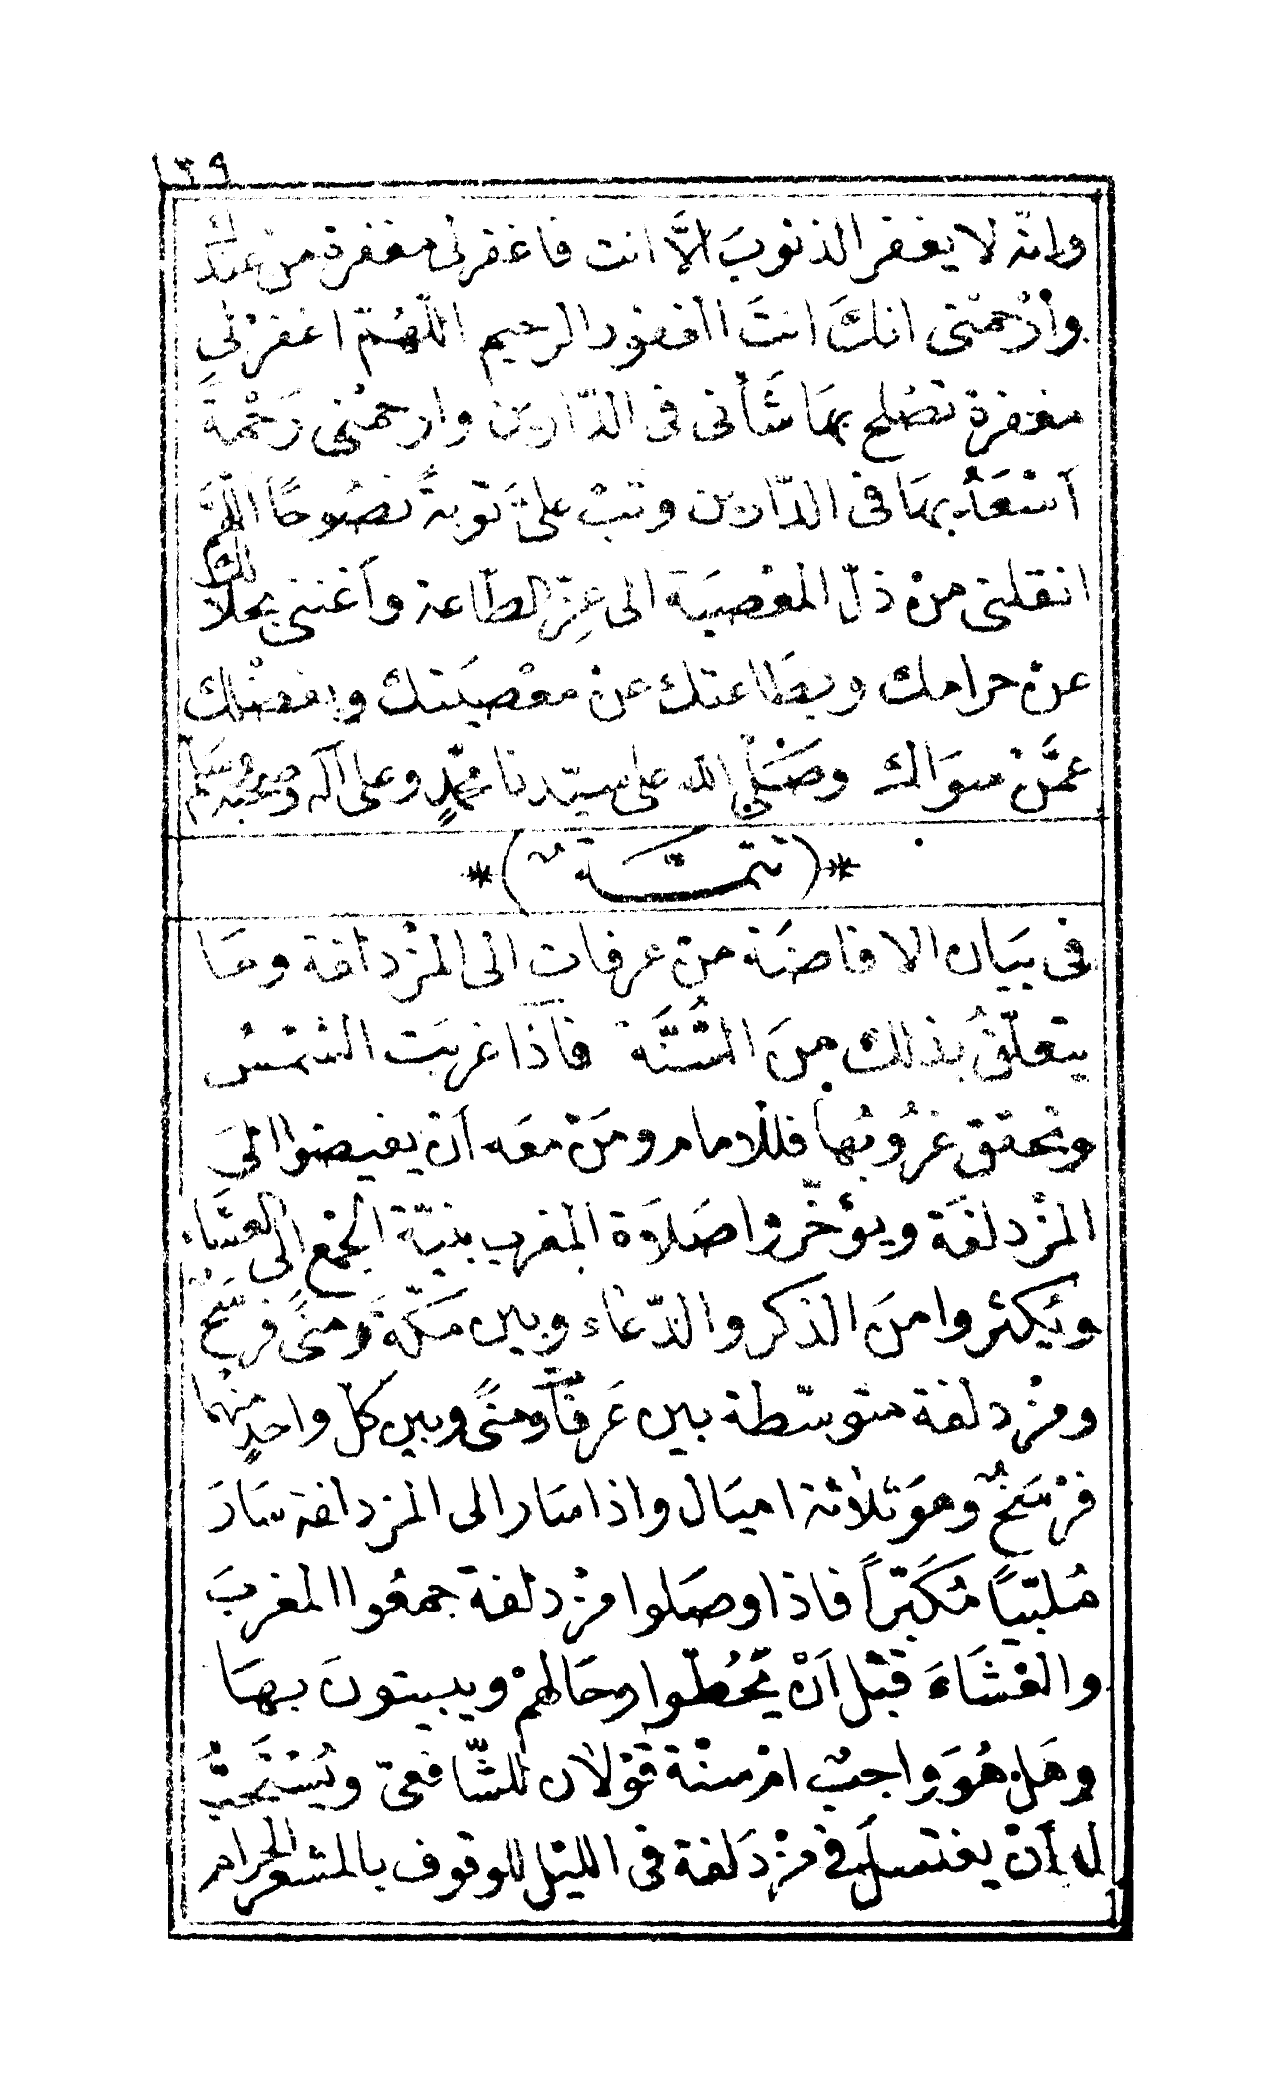 ١٣٩
وانّه لا يغفر الذنوبَ الّا انت فاغفرلى مغفرة من عندك
وارْحمْنى انكَ انتَ الغفور الرحيم اللّهُمّ اغفرْلى
مغفرة تصْلح بهَا شَأْنى فى الدّارين وارحمْنى رَحْمةً
اَسْعَدُ بهَا فى الدّارين وتبْ علىَّ توبةً نصُوحًا اللّهمَّ
انقلنى منْ ذلّ المعْصيَة الى عِزّ الطّاعة وأغننى بحلالك
عنْ حرامك وبطَاعتك عنْ معْصيَتك وبفضْلك
عمَّنْ سوَاك وصَلّى الله على سيّدنا محمّدٍ وعلى آله وصحْبه وسَلم
*( تتمّة )*
فى بيَان الافاضَة منْ عرفات الى المزْدلفة ومَا
يتعلّقُ بذلك منَ السُّنَّة فاذَا غربَت الشمْسُ
وتحقق غرُوبُها فللامام ومَنْ معَه اَنْ يفيضوا الىَ
المزْدلفَة ويؤخّروا صَلاَة المغرب بنيّة الجمْع الى العشَاء
ويُكثروا منَ الذكر والدّعَاء وبين مكّةَ ومنًى فرسَخٌ
ومزْدلفة متوسّطة بين عَرفَات ومنًى وبين كلّ واحدٍ منهُما
فرْسَخٌ وهوَ ثلاثة اميَال واذا سَار الى المزدلفة سَارَ
مُلبّيًا مُكَبّراً فاذا وصَلوا مزْدلفة جمعُوا المغربَ
والعْشَاءَ قبْل اَنْ يَحُطّوا رحَالهمْ ويبيتونَ بهَا
وهَلْ هُوَ واجبٌ امْ سنّة قوْلان للشّافعىّ ويُسْتَحَبُّ
له اَنْ يغتسلَ فى مزْدَلفة فى الليْل للوقوف بالمشعر الحرام